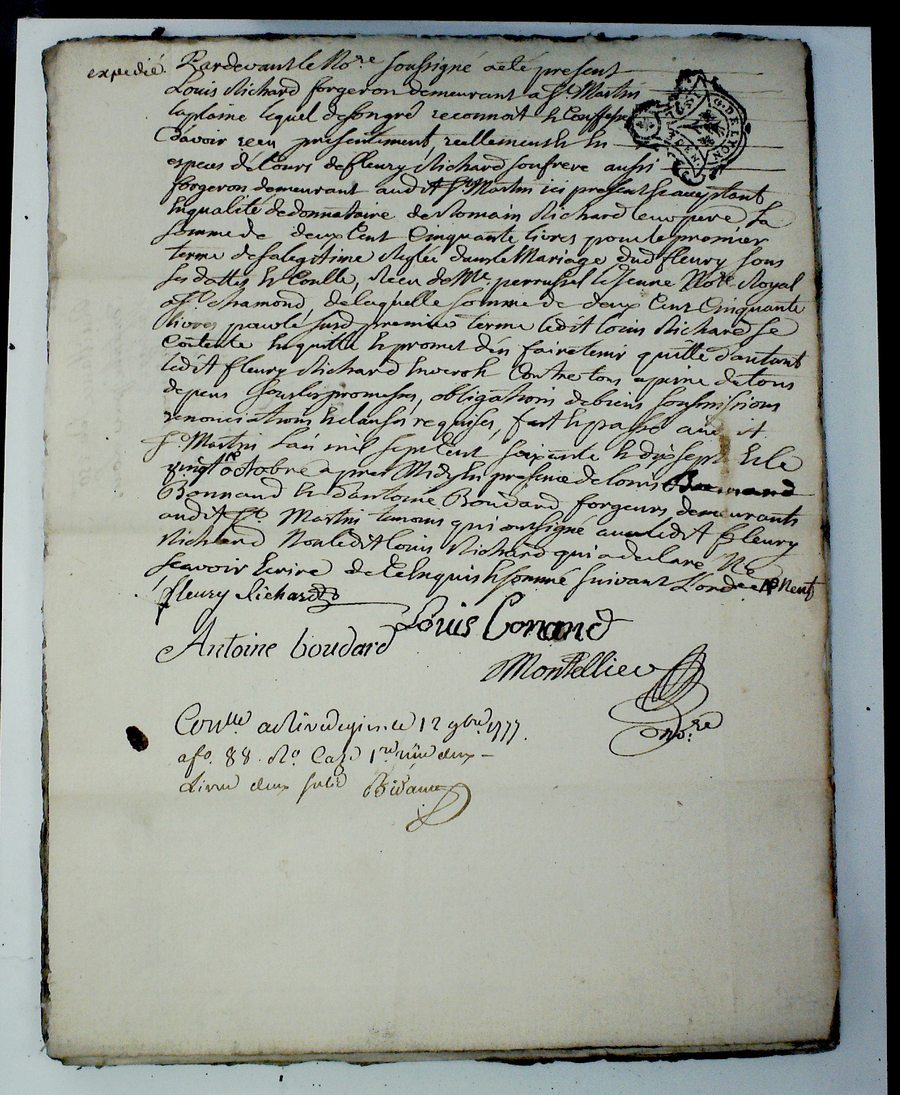 expedié
Pardevant le No.re soussigné a eté present
Louis Richard forgeron demeurant a St. Martin
laplaine lequel de son gré reconnoit & Confesse
d'avoir receu presentement, reellement & en
especes de Cours de fleury Richard son frere aussi
forgeron demeurant aud it St. Martin ici present & acceptant
En qualité de donnataire de Romain Richard leur pere La
somme de deux Cent Cinquante livres pour le premier
terme de sa legitime Reglée dans le Mariage dud fleury sous
ses dattes & Coulle, Receu de Me perrussel le Jeune No.re Royal
a St. chamond, de laquelle somme de deux Cent Cinquante
livres pour led susd premier terme ledit Louis Richard se
Contente En quitte & promet d'en faire tenir quitte d'autant
ledit fleury Richard Envers & Contre tous a peine de tous
depens sous les promesses, obligations de biens soumissions
renonciations & clauses requises, fait & passé aud it
St. Martin L'an mil sept Cent soixante & dix sept & le
vingt octobre apres Midy En presence de Louis
Bonnand & d'antoine Boudard forgeurs demeurants
audit St. Martin temoins qui ont signé avec ledit fleury
Richard Non ledit Louis Richard qui a declaré Ne
sçavoir Ecrire de ce Enquis & sommé suivant L'ordce
fleury Richard
Louis Conand
Antoine boudard
Montellier
no.re
Con.lle a Rivedegier le 12 9bre 1777.
a fo. 88. Ro. Case 1re deux
Livre deux sols
G. DE LYON